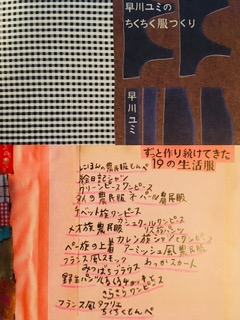 早川ユミの
ちくちく服つくり
早川ユミ
ずっと作り続けてきた
19の生活服
農民服もんぺ
絵日記シャツ
グリーンピースワンピース
タイの農民服 ネパール農民服
チベット族ワンピース
カシュクールワンピース
メオ族農民服
ペー族の上着 カレン族シャツとワンピース
アーミッシュ風農民服
フランス風スモック
みつばちブラウス わっかスカート
野生パンツ
きらきらワンピース
フランス風アトリエ
ちくちくもんぺ